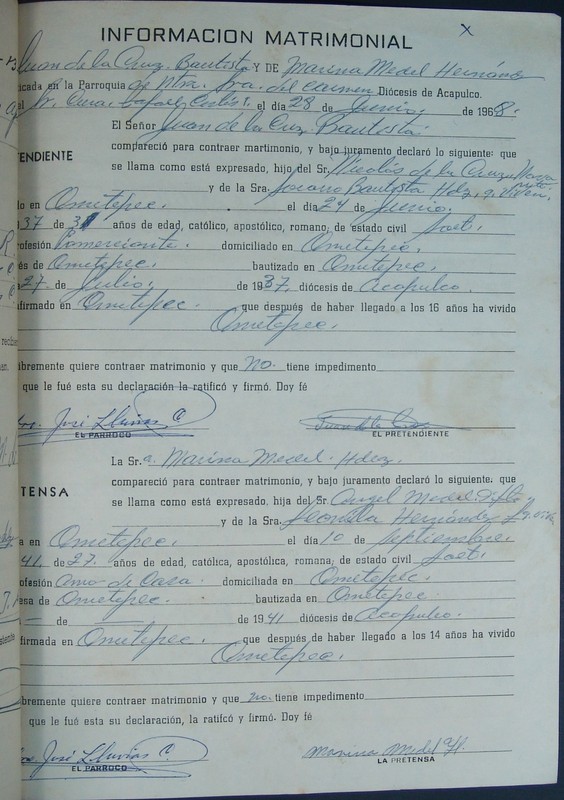 INFORMACION MATRIMONIAL
X
Juan de la Cruz Bautista Y DE Marina Medel Hernánd
icada en la Parroquia de Ntra. Sra. del Carmen Diócesis de Acapulco.
Sr. Cura el día 28 de Junio. de 1968.
El Señor Juan de la Cruz Bautista.
compareció para contraer martimonio, y bajo juramento declaró lo siguiente: que
TENDIENTE
se llama como está expresado, hijo del Sr. Nicolás de la Cruz
y de la Sra. Socorro Bautista Hdz. q. viven.
do en Ometepec. el día 24 de Junio.
37 de 31 años de edad, católico, apostólico, romano, de estado civil Solt.
ofesión Comerciante. domiciliado en Ometepec.
és de Ometepec. bautizado en Ometepec.
27. de Julio. de 1937 diócesis de Acapulco.
nfirmado en Ometepec. que después de haber llegado a los 16 años ha vivido
Ometepec.
ibremente quiere contraer matrimonio y que No. tiene impedimento
que le fué esta su declaración la ratificó y firmó. Doy fé
José Lluvias C. Juan de la Cruz
EL PARROCO EL PRETENDIENTE
La Sr.a. Marina Medel. Hdez.
compareció para contraer matrimonio, y bajo juramento declaró lo siguiente: que
TENSA
se llama como está expresado, hija del Sr. Angel Medel
y de la Sra. Leonila Hernández
a en Ometepec. el día 10 de Septiembre.
41. de 27. años de edad, católica, apostólica, romana, de estado civil Solt.
ofesión Ama de Casa. domiciliada en Ometepec.
esa de Ometepec. bautizada en Ometepec.
— de — de 1941 diócesis de Acapulco.
firmada en Ometepec. que después de haber llegado a los 14 años ha vivido
Ometepec.
bremente quiere contraer matrimonio y que no. tiene impedimento
que le fué esta su declaración, la ratifcó y firmó. Doy fé
José Lluvias C. Marina Medel H.
EL PARROCO LA PRETENSA